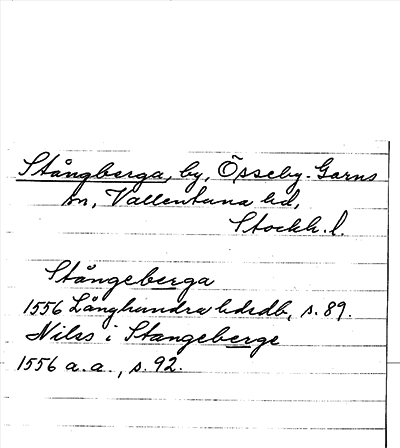 Stångberga, by, Össeby-Garns
sn, Vallentuna hd,
Stockh. l.
Stångeberga
1556 Långhundra hdrdb, s. 89.
Nils i Stangeberge
1556 a.a., s. 92.